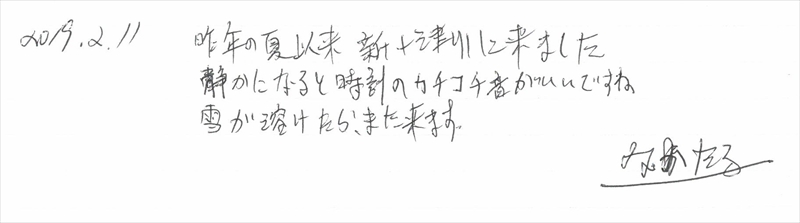 2019.2.11
昨年の夏以来 新十津川に来ました
静かになると時刻のカチコチ音がいいですね
雪が溶けたら、また来ます。